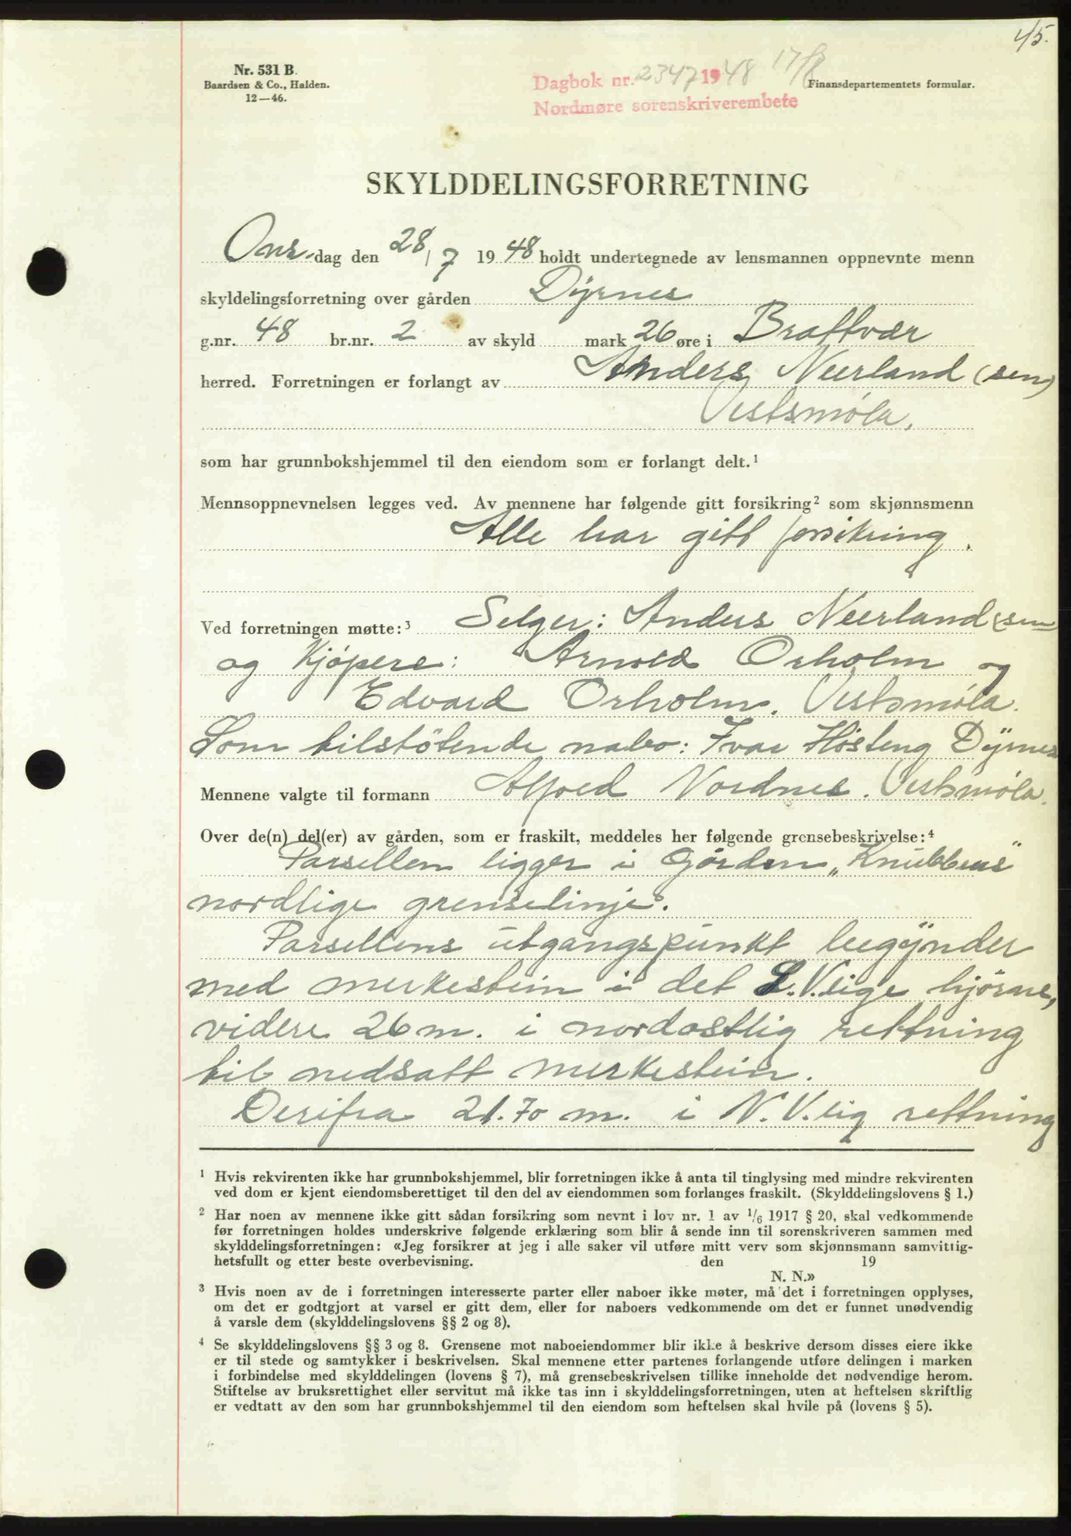 45.
Nr. 531 B.
Baardsen & Co., Halden.
12—46.
Dagbok nr. 2347 1948 17/8
Nordmøre sorenskriverembete
Finansdepartementets formular.
SKYLDDELINGSFORRETNING
Onsdag den 28/7 1948 holdt undertegnede av lensmannen oppnevnte menn
skyldelingsforretning over gården Dyrnes
g.nr. 48 br.nr. 2 av skyld mark 26 øre i Brattvær
herred. Forretningen er forlangt av Anders Neerland (sen)
Vestsmøla,
som har grunnbokshjemmel til den eiendom som er forlangt delt.¹
Mennsoppnevnelsen legges ved. Av mennene har følgende gitt forsikring² som skjønnsmenn
Alle har gitt forsikring.
Ved forretningen møtte:³ Selger: Anders Neerland (sen
og Kjøpere: Arnold Orholm og
Edvard Orholm. Vestsmøla.
Som tilstøtende nabo: Ivar Høsteng Dyrnes
Mennene valgte til formann Alfred Nordnes. Vestsmøla.
Over de(n) del(er) av gården, som er fraskilt, meddeles her følgende grensebeskrivelse:⁴
Parsellen ligger i Gården „Knubbens"
nordlige grenselinje.
Parsellens utgangspunkt begynder
med merkestein i det S.V.lige hjørne,
videre 26 m. i nordøstlig rettning
til nedsatt merkestein.
Derifra 21.70 m. i N.V.lig rettning
¹ Hvis rekvirenten ikke har grunnbokshjemmel, blir forretningen ikke å anta til tinglysing med mindre rekvirenten
ved dom er kjent eiendomsberettiget til den del av eiendommen som forlanges fraskilt. (Skylddelingslovens § 1.)
² Har noen av mennene ikke gitt sådan forsikring som nevnt i lov nr. 1 av 1/6 1917 § 20, skal vedkommende
før forretningen holdes underskrive følgende erklæring som blir å sende inn til sorenskriveren sammen med
skylddelingsforretningen: «Jeg forsikrer at jeg i alle saker vil utføre mitt verv som skjønnsmann samvittig-
hetsfullt og etter beste overbevisning. den 19
N. N.»
³ Hvis noen av de i forretningen interesserte parter eller naboer ikke møter, må det i forretningen opplyses,
om det er godtgjort at varsel er gitt dem, eller for naboers vedkommende om det er funnet unødvendig
å varsle dem (skylddelingslovens §§ 2 og 8).
⁴ Se skylddelingslovens §§ 3 og 8. Grensene mot naboeiendommer blir ikke å beskrive dersom disses eiere ikke
er til stede og samtykker i beskrivelsen. Skal mennene etter partenes forlangende utføre delingen i marken
i forbindelse med skylddelingen (lovens § 7), må grensebeskrivelsen tillike inneholde det nødvendige herom.
Stiftelse av bruksrettighet eller servitut må ikke tas inn i skylddelingsforretningen, uten at heftelsen skriftlig
er vedtatt av den som har grunnbokshjemmel til den eiendom som heftelsen skal hvile på (lovens § 5).